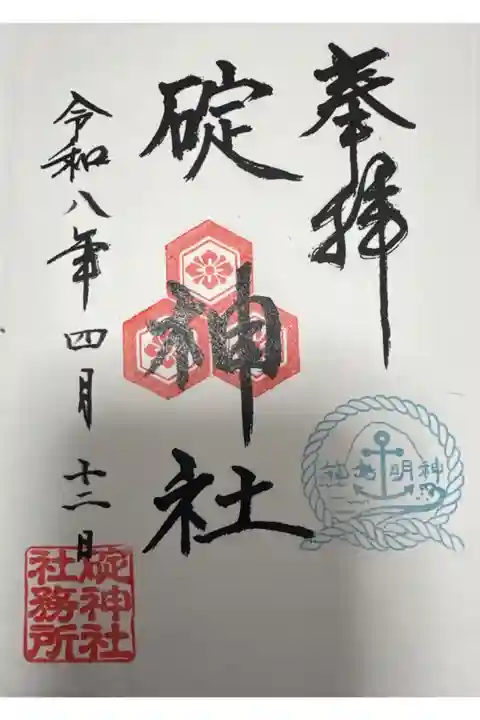 奉拝
碇神社
令和八年四月十二日
箱島明神
碇神社
社務所